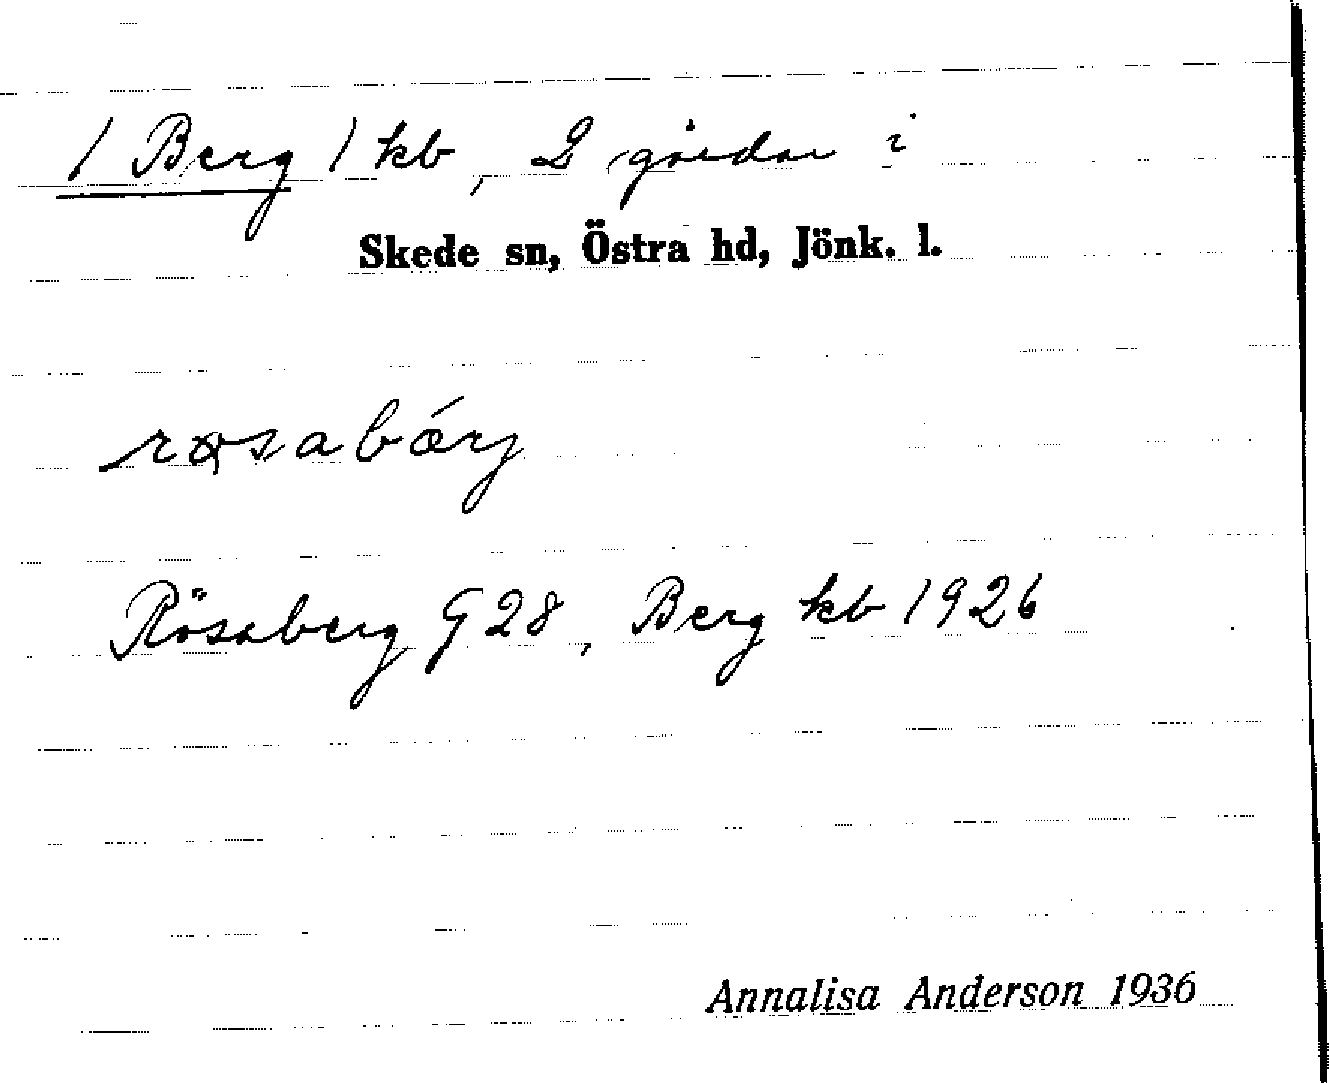 / Berg / kb, 2 gårdar i
Skede sn, Östra hd, Jönk. l.
rosabǽrj
Rösaberg G 28, Berg kb 1926
Annalisa Anderson 1936